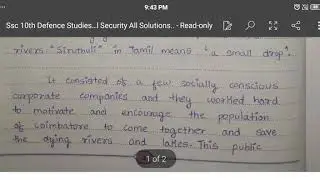 9:43 PM
Ssc 10th Defence Studies...l Security All Solutions.. - Read-only
rivers "Siruthuli" in Tamil means "a small drop".
It consisted of a few socially conscious
corporate companies and they worked hard
to motivate and encourage the population
of coimbatore to come together and save
the dying rivers and lakes. This public
1 of 2